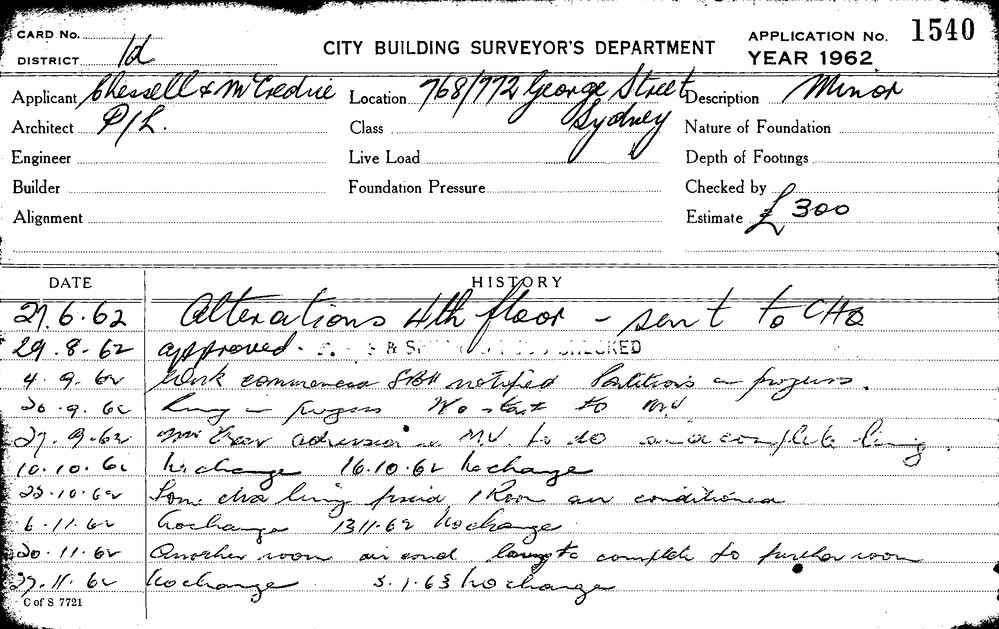 CARD No.
DISTRICT 1d
CITY BUILDING SURVEYOR'S DEPARTMENT
APPLICATION No. 1540
YEAR 1962
Applicant Chessell & McCredie Location 768/772 George Street Description Minor
Architect P/L. Class Sydney Nature of Foundation
Engineer Live Load Depth of Footings
Builder Foundation Pressure Checked by
Alignment Estimate £300
DATE HISTORY
27.6.62 Alterations 4th floor - sent to CHO
29.8.62 approved. & CHECKED
4.9.62 Work commenced notified Partitions in progress.
20.9.62 in progress No start to MV
27.9.62 MV to do and complete
10.10.62 No change 16.10.62 No change
25.10.62 Some 1 Room air conditioned
6.11.62 No change 13.11.62 No change
20.11.62 Another room air cond to complete to further room
27.11.62 No change 3.1.63 No change
C of S 7721